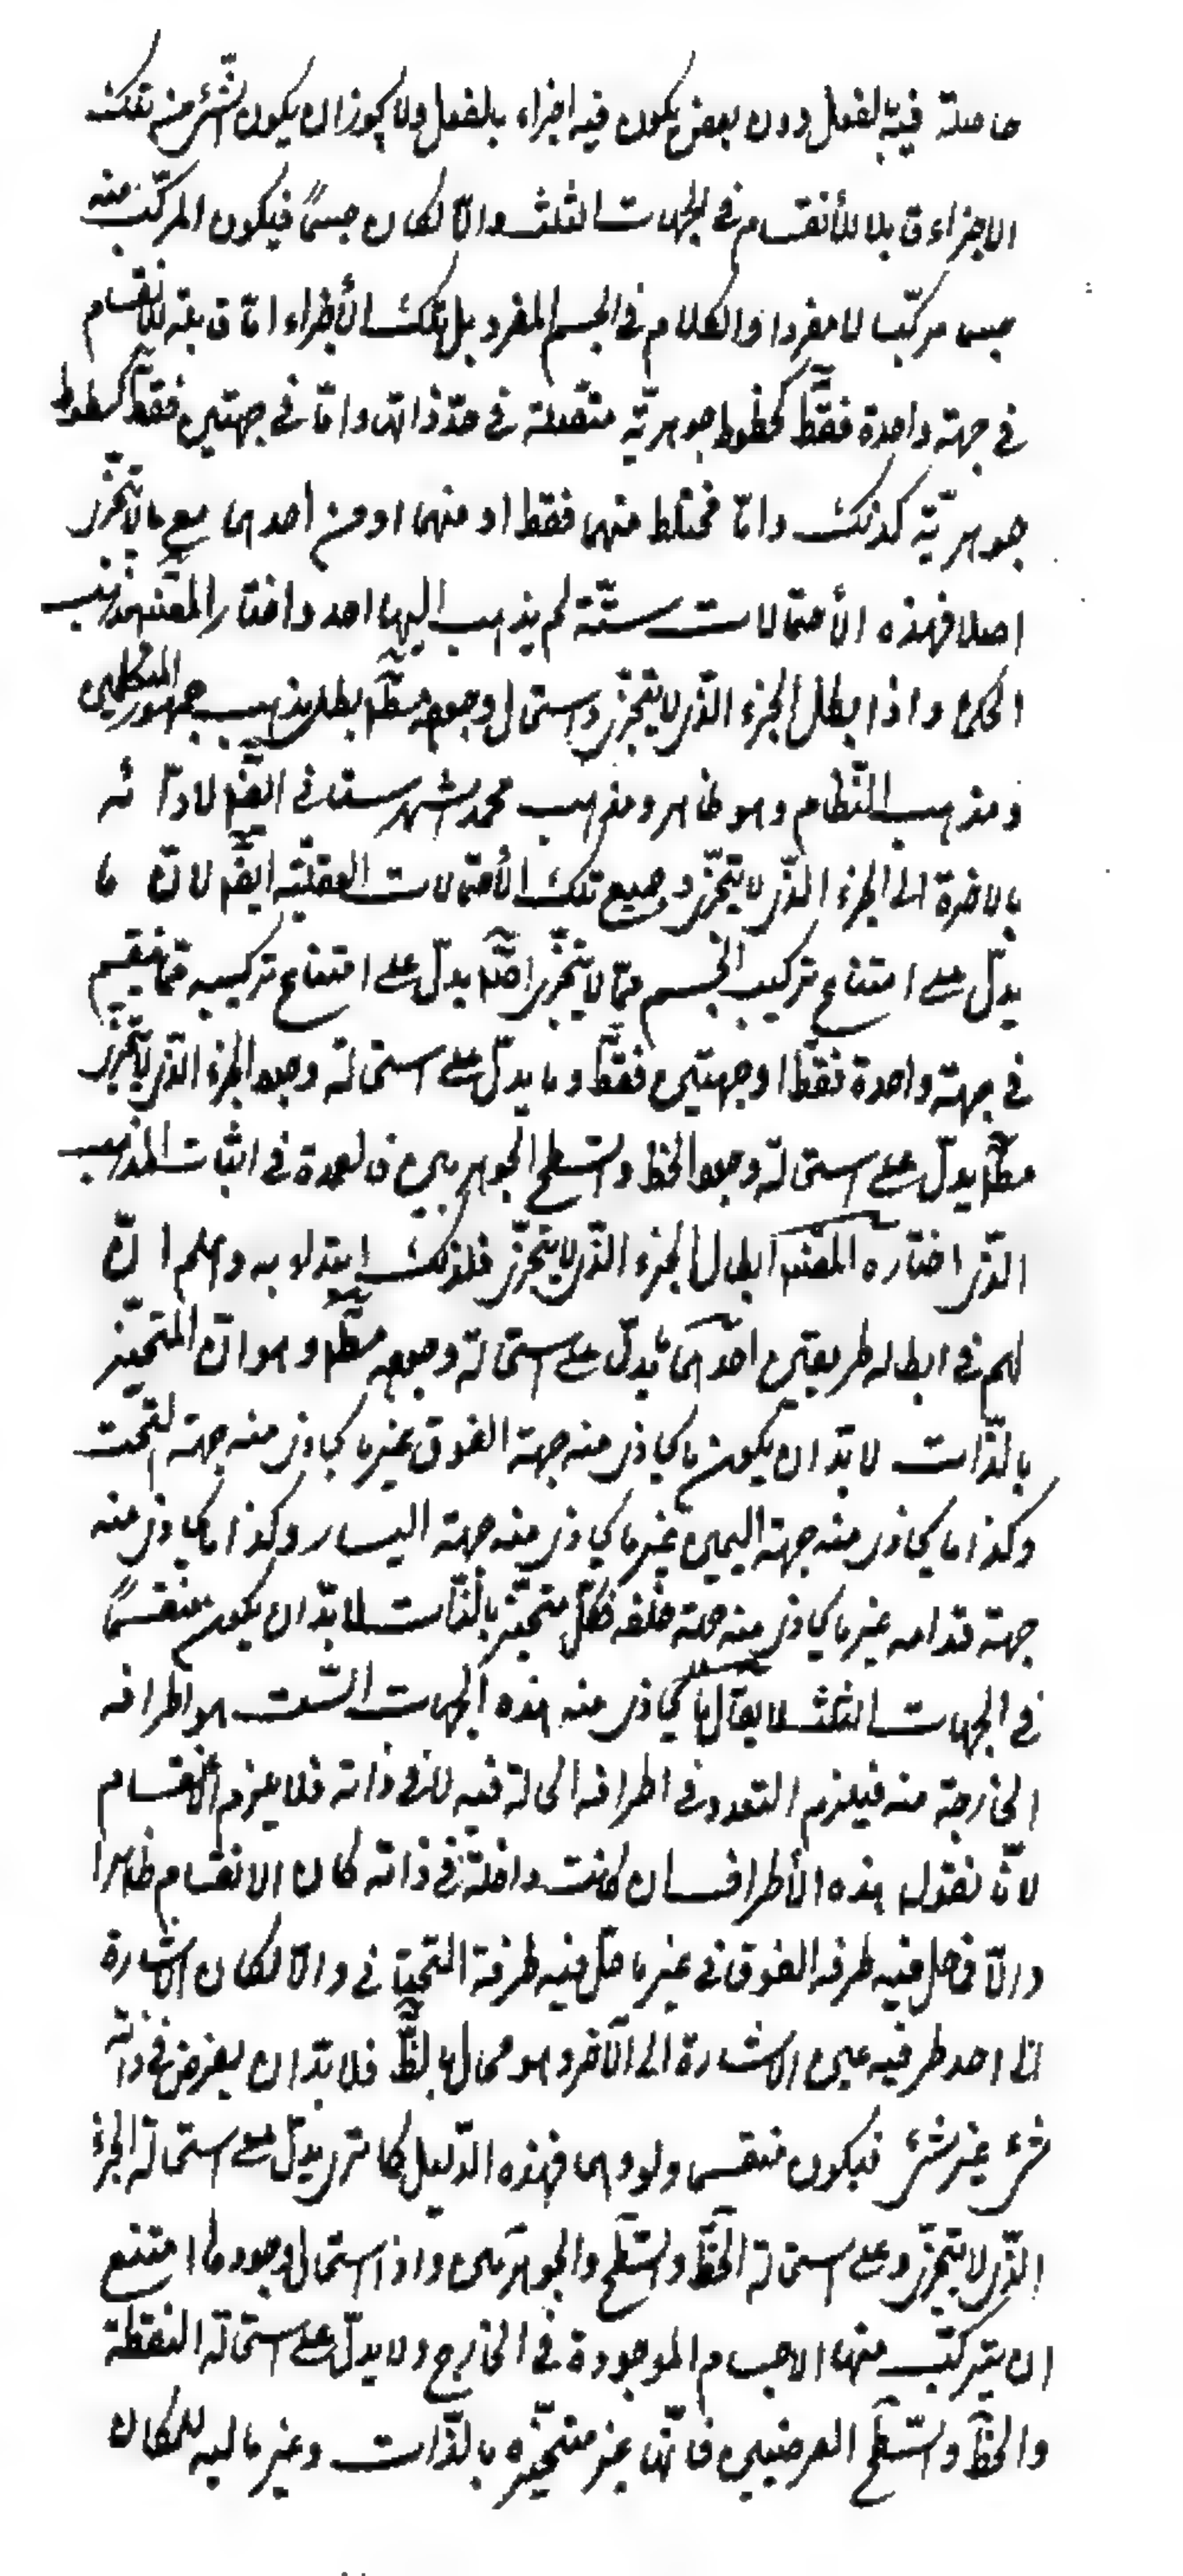 حاصلة فيه بالفعل دون بعض يكون فيه اجزاء بالفعل ولا يجوز ان يكون شئ من تلك
الاجزاء قابلا للأنقسام فى الجهات الثلث والّا لكان جسمًا فيكون المركّب منه
جسما مركّبا لا مفردا والكلام فى الجسم المفرد بل تلك الأجزاء امّا قابلة للانقسام
فى جهة واحدة فقط كخطوط جوهريّة متّصلة فى حدّ ذاتها وامّا فى جهتين فقط كسطوح
جوهريّة كذلك وامّا مختلط منهما فقط او منهما او من احدهما مع ما لا يتجزّى
اصلا فهذه الأحتمالات ستّة لم يذهب اليها احد واختار المصنف مذهب
الحكماء واذا بطل الجزء الذّى لا يتجزّى واستحال وجوده مطلقا بطل مذهب جمهور المتكلمين
ومذهب النّظام وهو ظاهر ومذهب محمد شهرستانى ايضا لادّائه
بالاخرة الى الجزء الذّى لا يتجزّى وجميع تلك الأحتمالات العقليّة ايضا لانّ ما
يدلّ على امتناع تركيب الجسم ممّا لا يتجزّى اصلا يدلّ على امتناع تركيبه ممّا ينقسم
فى جهة واحدة فقط او جهتين فقط وما يدلّ على استحالة وجود الجزء الذّى لا يتجزّى
مطلقا يدلّ على استحالة وجود الخط والسّطح الجوهريين فالعمدة فى اثبات المذهب
الذّى اختاره المصنف ابطال الجزء الذّى لا يتجزّى فلذلك ابتدؤا به واعلم انّ
لهم فى ابطاله طريقين احدهما يدلّ على استحالة وجوده مطلقا وهو انّ المتحيّز
بالذّات لا بدّ ان يكون ما يحاذى منه جهة الفوق غير ما يحاذى منه جهة التّحت
وكذا ما يحاذى منه جهة اليمين غير ما يحاذى منه جهة اليسار وكذا ما يحاذى منه
جهة قدامه غير ما يحاذى منه جهة خلفه فكلّ متحيّز بالذّات لا بدّ ان يكون منقسمًا
فى الجهات الثلث لا يقال ما يحاذى منه هذه الجهات السّت هو اطرافه
الخارجة منه فيلزم التعدد فى اطرافه الحالة فيه لا فى ذاته فلا يلزم الأنقسام
لانّا نقول هذه الأطراف ان كانت داخلة فى ذاته كان الانقسام ظاهرا
والّا فما حلّ فيه طرفه الفوقانى غير ما حلّ فيه طرفه التحتانى والّا لكان الاشارة
الى احد طرفيه عين الاشارة الى الآخر وهو محال بالبداهة فلا بدّ ان يفرض فى ذاته
شئ غير شئ فيكون منقسما ولو وهما فهذه الدّليل كما ترى يدلّ على استحالة الجزء
الذّى لا يتجزّى وعلى استحالة الخط والسّطح الجوهريين واذا استحال وجودها امتنع
ان يتركّب منها الاجسام الموجودة فى الخارج ولا يدلّ على استحالة النقطة
والخط والسّطح العرضيين فانّها غير متحيّزه بالذّات وغير مالية للمكان